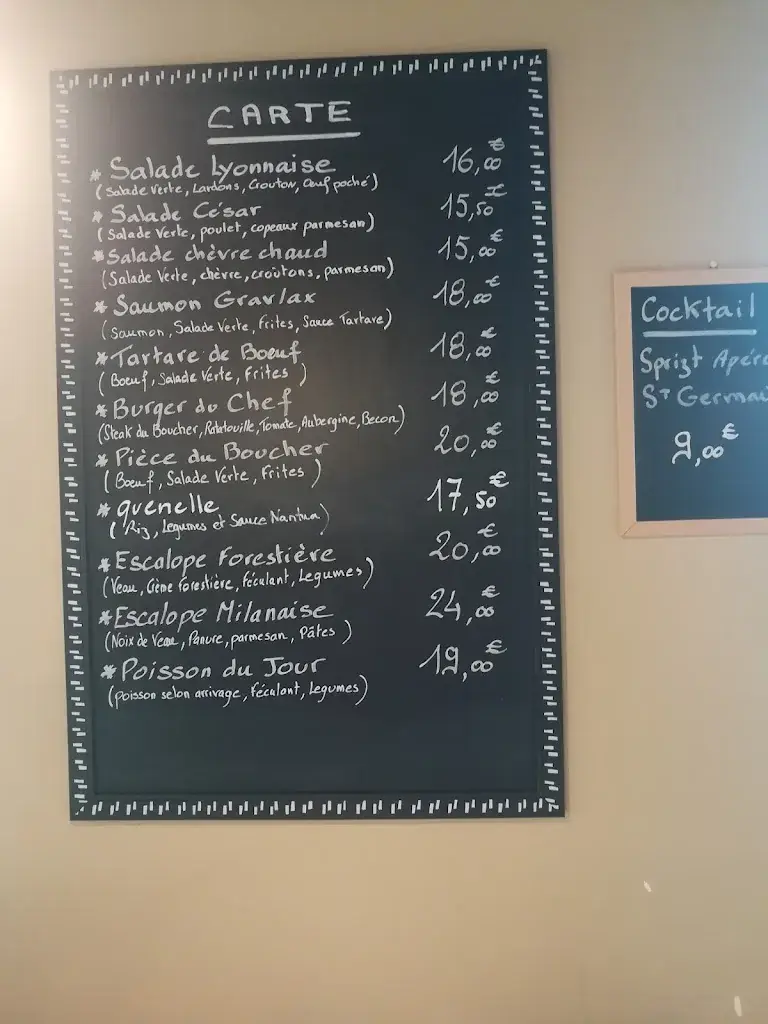 CARTE
* Salade Lyonnaise 16,00€
(Salade Verte, Lardons, Crouton, Œuf poché)
* Salade César 15,50€
(Salade Verte, poulet, copeaux parmesan)
* Salade chèvre chaud 15,00€
(Salade Verte, chèvre, croûtons, parmesan)
* Saumon Gravlax 18,00€
(Saumon, Salade Verte, Frites, Sauce Tartare)
* Tartare de Boeuf 18,00€
(Boeuf, Salade Verte, Frites)
* Burger du Chef 18,00€
(Steak du Boucher, Ratatouille, Tomate, Aubergine, Becon)
* Pièce du Boucher 20,00€
(Boeuf, Salade Verte, Frites)
* quenelle 17,50€
(Riz, Legumes et Sauce Nantua)
* Escalope Forestière 20,00€
(Veau, Crème forestière, féculant, Legumes)
* Escalope Milanaise 24,00€
(Noix de Veau, Panure, parmesan, Pâtes)
* Poisson du Jour 19,00€
(poisson selon arrivage, féculant, Legumes)
Cocktail
Sprizt Apéro
St Germai
9,00€